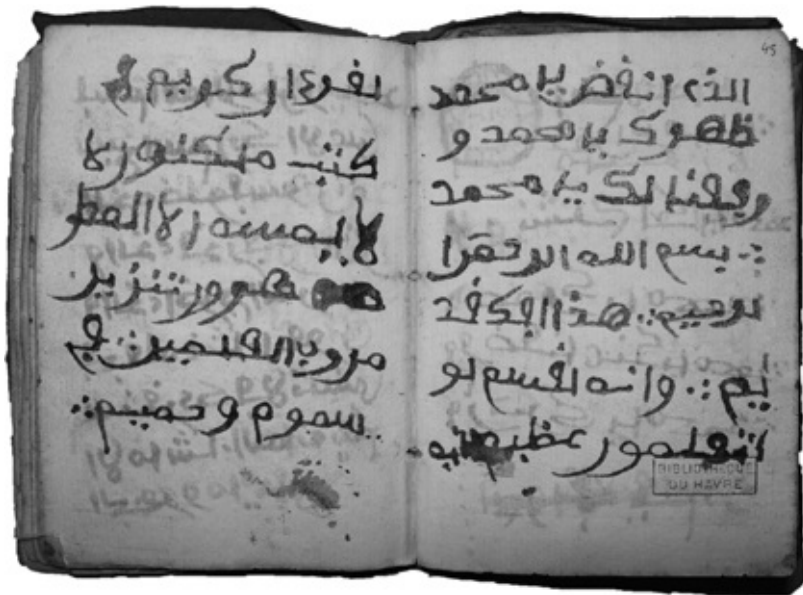 45
الذي انقض يا محمد
ظهرك يا محمد و
رفعنا لك يا محمد
بسم الله الرحمن ا
لرحيم هذا
وانه لقسم لو
تعلمون عظيم انه
BIBLIOTHEQUE
DU HAVRE
لقرءان كريم في
كتب مكنون لا
لا يمسه الا المطهر
تنزيل
من رب العلمين في
سموم وحميم